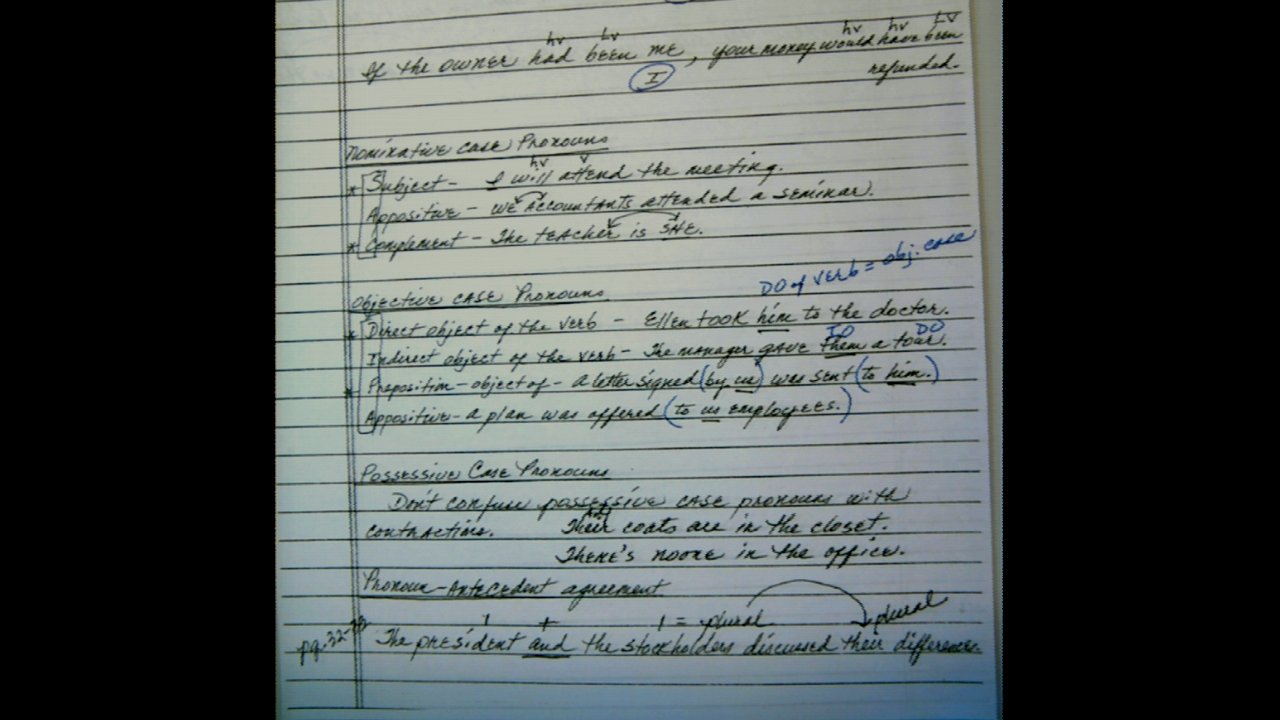 hv Lv hv hv Lv
If the owner had been me, your money would have been
I refunded.
Nominative Case Pronouns
hv v
* Subject - I will attend the meeting.
Appositive - We Accountants attended a seminar.
* Complement - The teacher is SHE.
DO of verb = obj. case
Objective Case Pronouns
* Direct object of the verb - Ellen took him to the doctor.
IO DO
Indirect object of the verb - The manager gave them a tour.
* Preposition - object of - A letter signed (by us) was sent (to him.)
Appositive - A plan was offered (to us employees.)
Possessive Case Pronouns
Don't confuse possessive case pronouns with
contractions. Their coats are in the closet.
There's no one in the office.
Pronoun-Antecedent agreement
1 + 1 = plural plural
pg. The president and the stockholders discussed their differences.